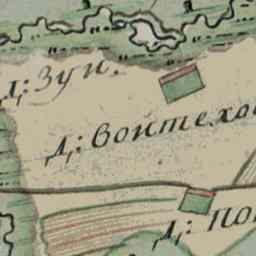 д: Зуи.
д: Войтехо
д: По